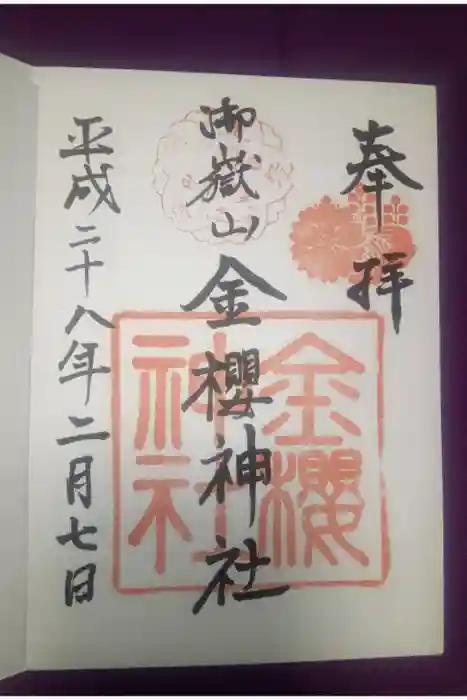 奉拝
御嶽山
金櫻神社
平成二十八年二月七日
金櫻
神社